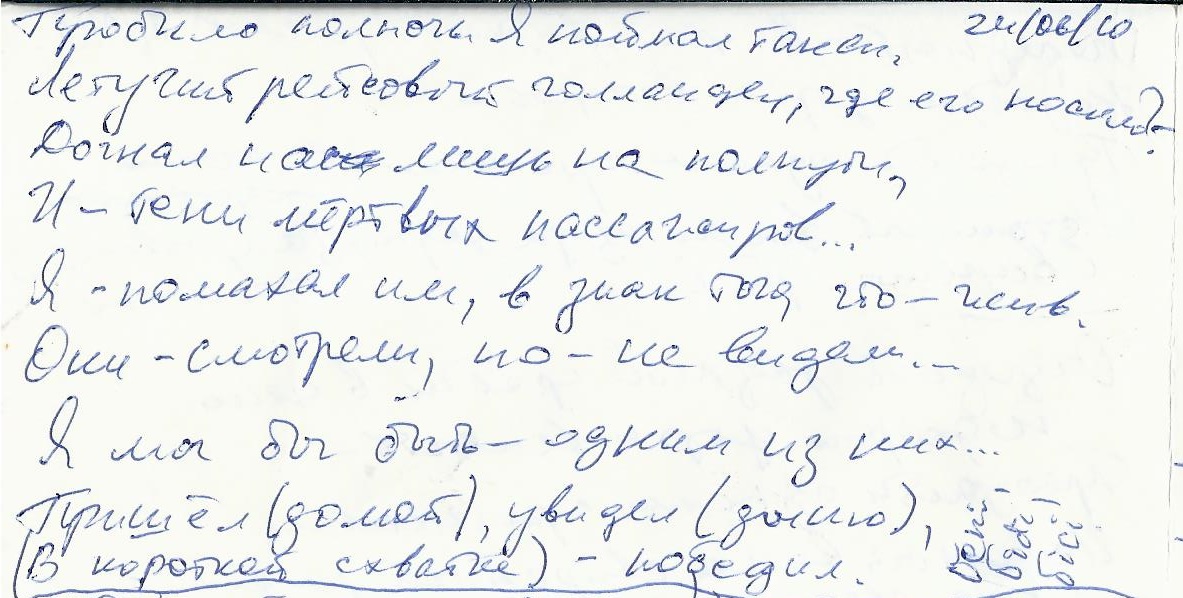 Пробило полночь. Я поймал такси. 24/06/10
Летучий рейсовый голландец, где его носило?
Догнал нас лишь на полпути,
И – тени мёртвых пассажиров...
Я – помахал им, в знак того, что – жив.
Они – смотрели, но – не видели...
Я мог бы быть – одним из них...
Пришёл (домой), увидел (дочь),
(В короткой схватке) – победил.
Veni
Vidi
Vici